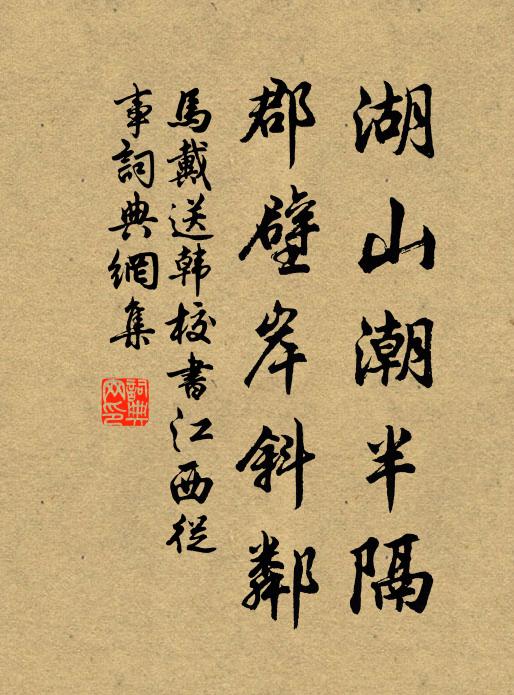 湖山潮半隔
郡壁岸斜鄰
馬戴送韩校書江西從
事詞典網集
詞典
网印